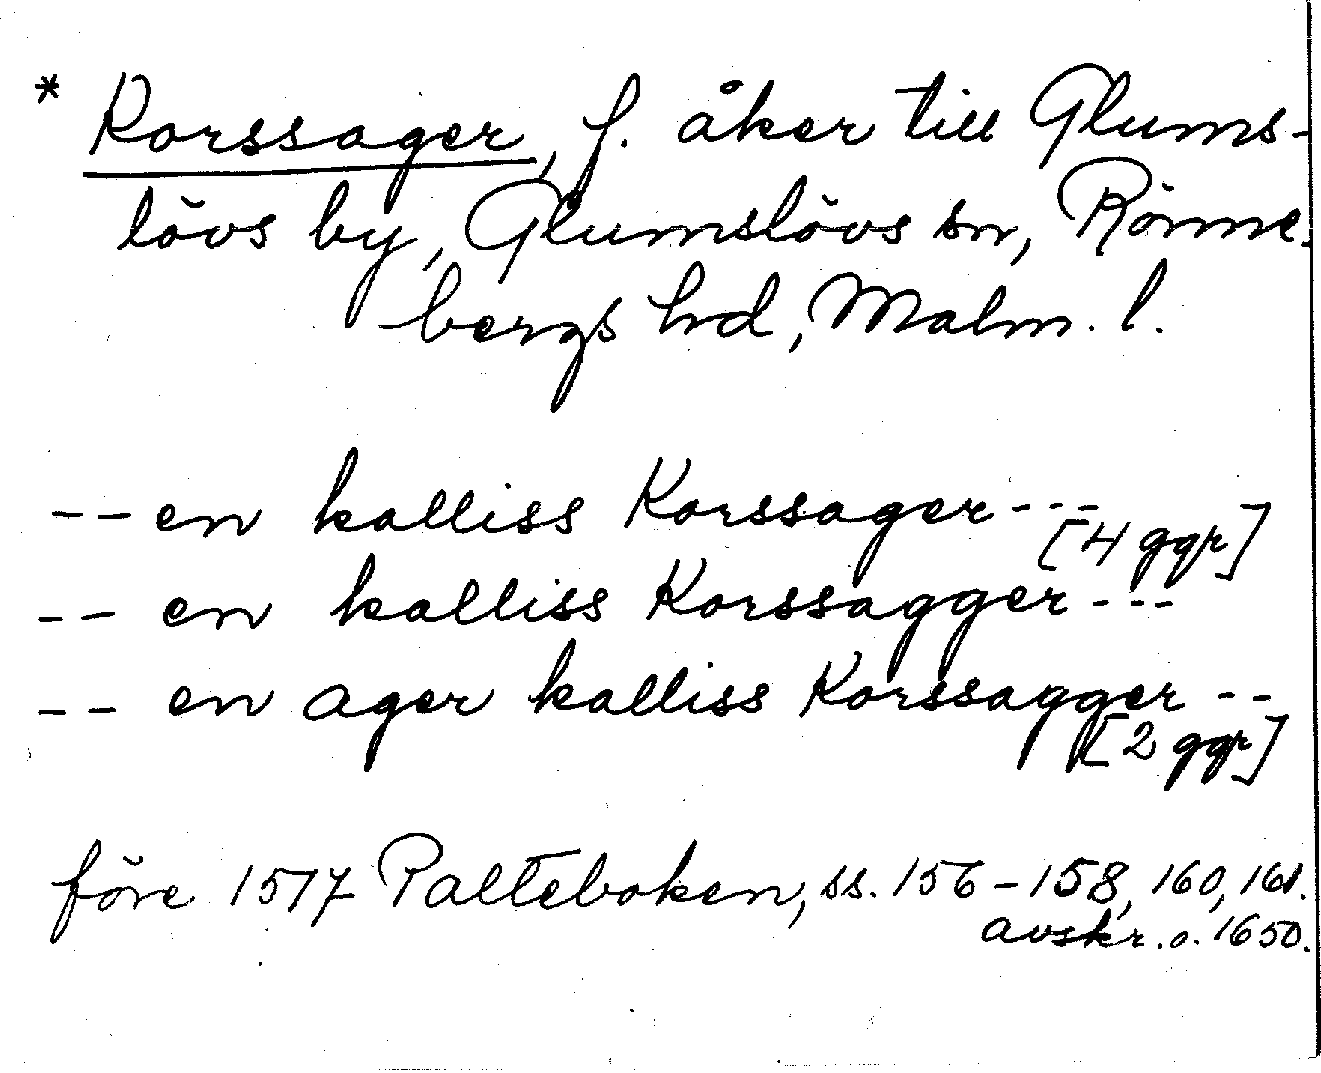 * Korssager, f. åker till Glums-
lövs by, Glumslövs sn, Rönne-
bergs hd, Malm. l.
-- en kalliss Korssager ---
[4 ggr]
-- en kalliss Korssagger ---
-- en ager kalliss Korssagger --
[2 ggr]
före 1517 Palteboken, ss. 156-158, 160, 161.
avskr. o. 1650.